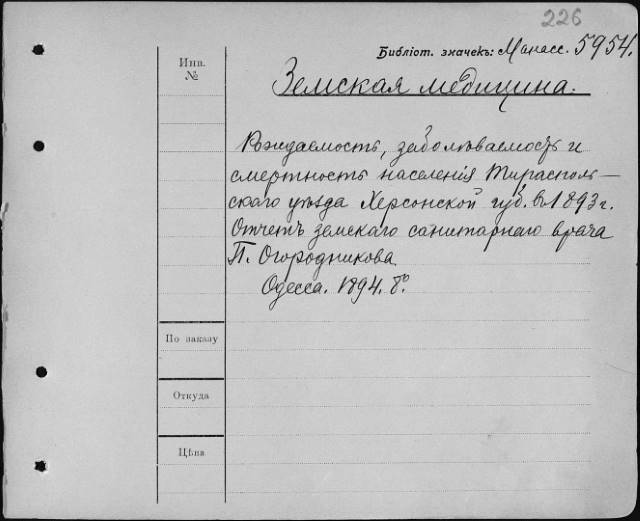 226
Библіот. значекъ: Манасс. 5954.
Инв.
№
Земская медицина.
Рождаемость, заболѣваемость и
смертность населенія Тирасполь-
скаго уѣзда Херсонской губ. въ 1893 г.
Отчетъ земскаго санитарнаго врача
П. Огородникова
Одесса. 1894. 8º.
По заказу
Откуда
Цѣна